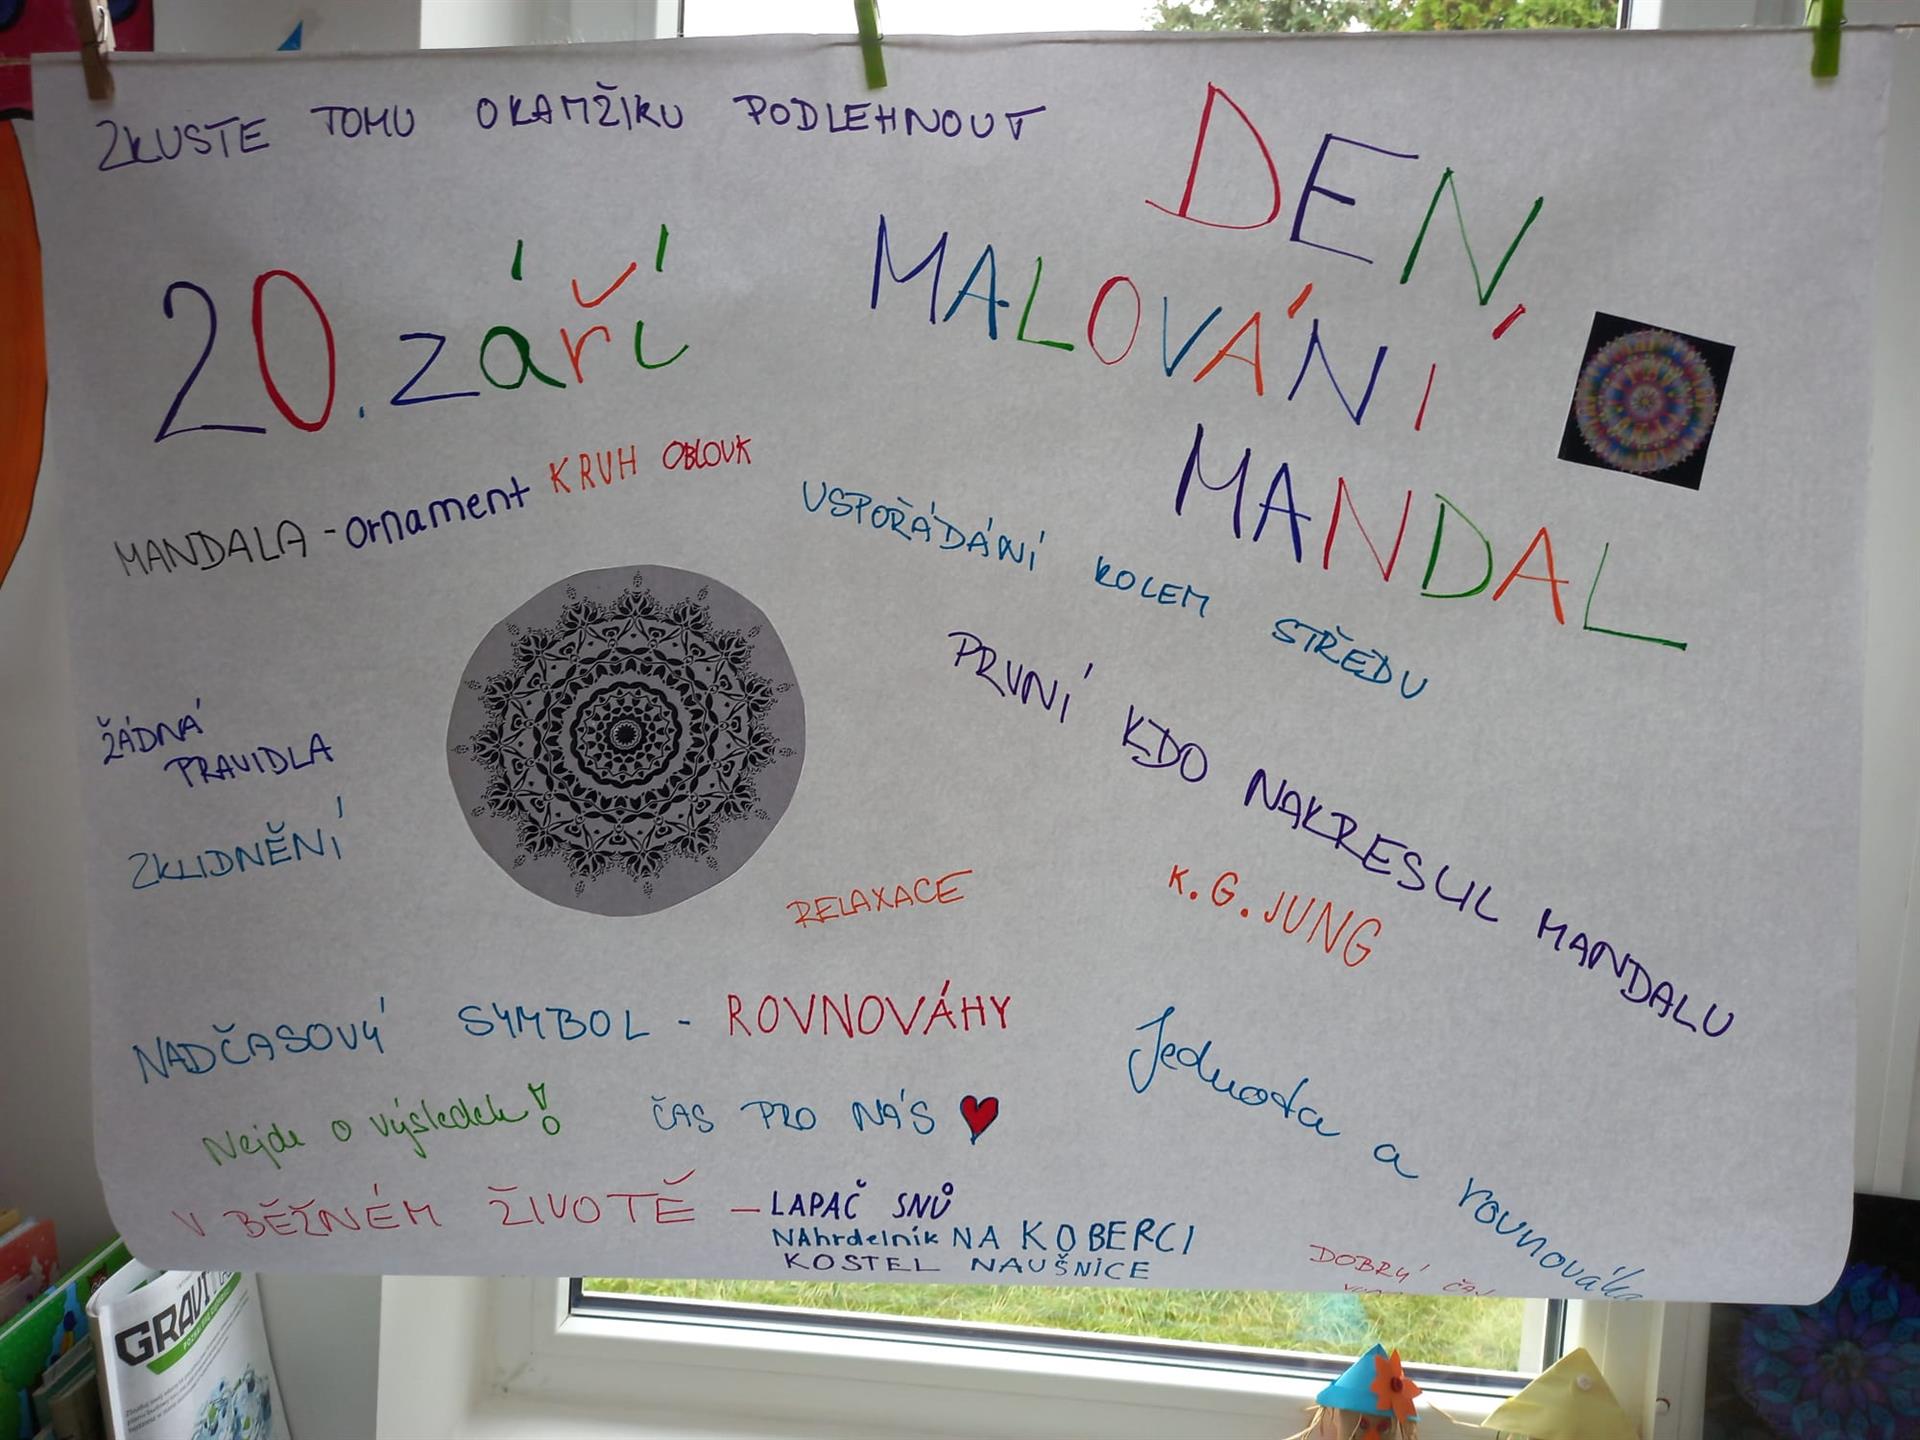 ZKUSTE TOMU OKAMŽIKU PODLEHNOUT
DEN
MALOVÁNÍ
MANDAL
20. září
MANDALA - ornament KRUH OBLOUK
USPOŘÁDÁNÍ KOLEM STŘEDU
PRVNÍ KDO NAKRESLIL MANDALU
K. G. JUNG
ŽÁDNÁ
PRAVIDLA
ZKLIDNĚNÍ
RELAXACE
NADČASOVÝ SYMBOL - ROVNOVÁHY
Jednota a rovnováha
Nejde o výsledek!
ČAS PRO NÁS
V BĚŽNÉM ŽIVOTĚ - LAPAČ SNŮ
NÁhrdelník NA KOBERCI
KOSTEL NAUŠNICE
DOBRÝ ČAJ
GRAVIT